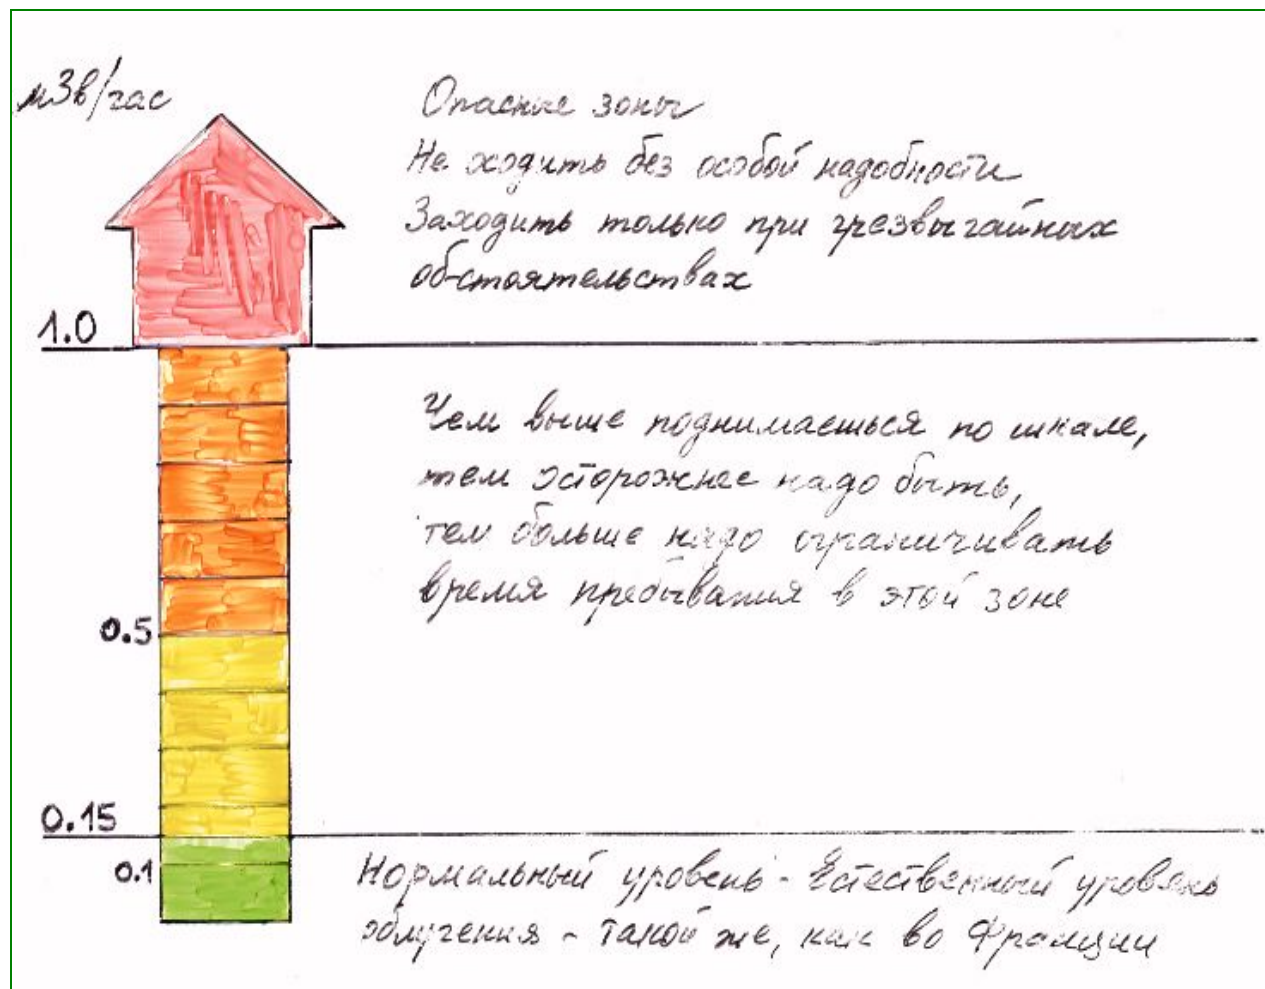 мЗв/час
Опасные зоны
Не ходить без особой надобности
Заходить только при чрезвычайных
обстоятельствах
1.0
Чем выше поднимаешься по шкале,
тем осторожнее надо быть,
тем больше надо ограничивать
время пребывания в этой зоне
0.5
0.15
0.1
Нормальный уровень - Естественный уровень
облучения - такой же, как во Франции